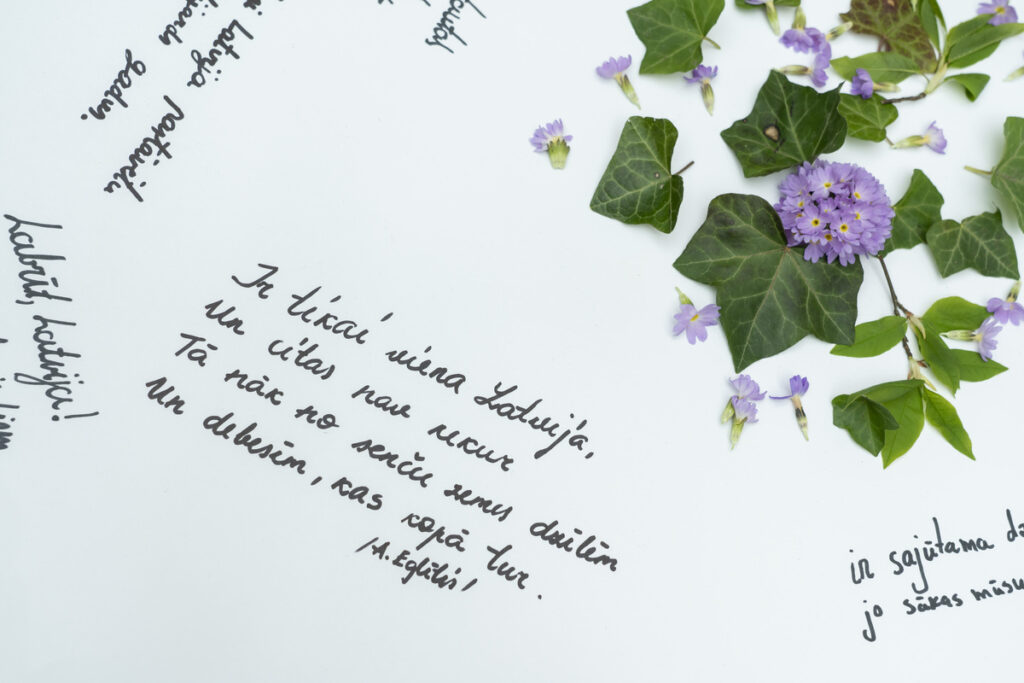 Latvija pastāvētu
gadus.
Labrīt, Latvija!
Ir tikai viena Latvija,
Un citas nav nekur
Tā nāk no senču zemes dzīlēm
Un debesīm, kas kopā tur.
/A. Eglītis/
ir sajūtama
jo sākas mūsu